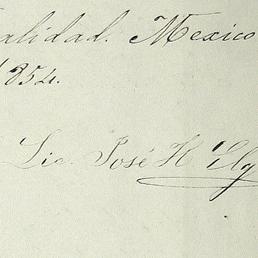 alidad. Mexico
1854.
Lic. José H.